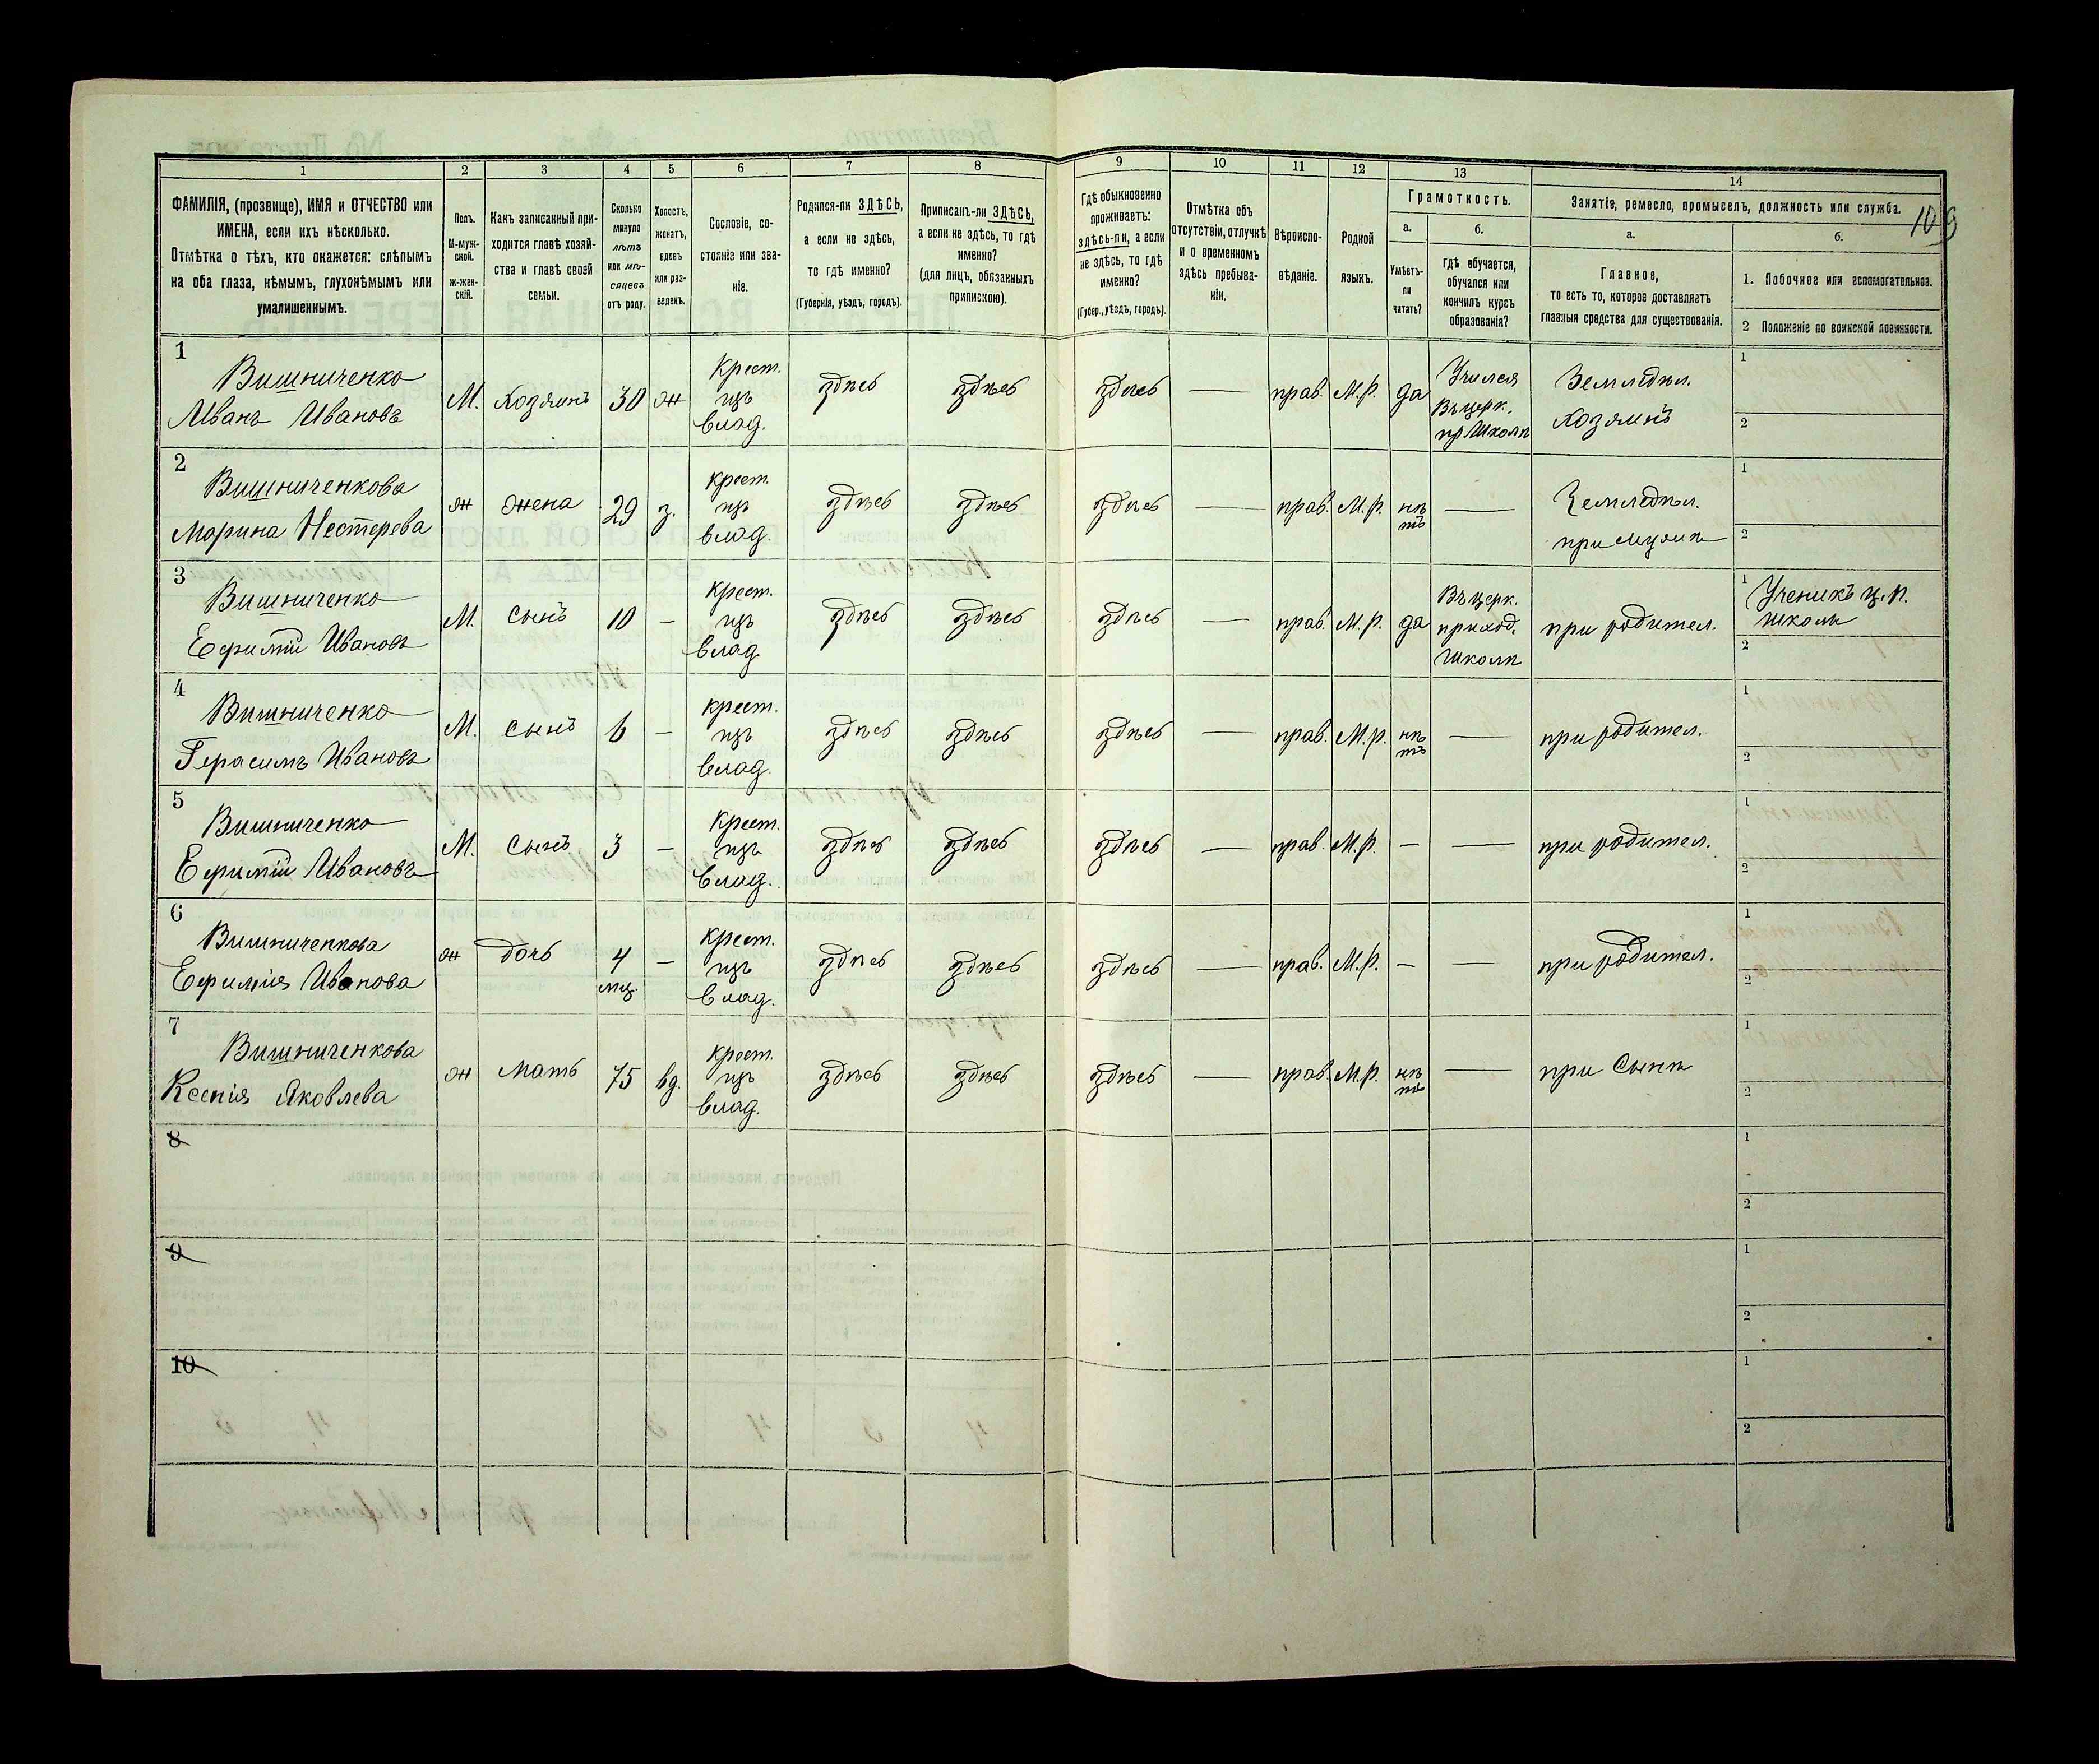 109
1 2 3 4 5 6 7 8 9 10 11 12 13 14
ФАМИЛІЯ, (прозвище), ИМЯ и ОТЧЕСТВО или
ИМЕНА, если ихъ нѣсколько.
Отмѣтка о тѣхъ, кто окажется: слѣпымъ
на оба глаза, нѣмымъ, глухонѣмымъ или
умалишеннымъ.
Полъ.
М-муж-
ской.
ж-жен-
скій.
Какъ записанный при-
ходится главѣ хозяй-
ства и главѣ своей
семьи.
Сколько
минуло
лѣтъ
или мѣ-
сяцевъ
отъ роду.
Холостъ,
женатъ,
вдовъ
или раз-
веденъ.
Сословіе, со-
стояніе или зва-
ніе.
Родился-ли ЗДѢСЬ,
а если не здѣсь,
то гдѣ именно?
(Губернія, уѣздъ, городъ).
Приписанъ-ли ЗДѢСЬ,
а если не здѣсь, то гдѣ
именно?
(для лицъ, обязанныхъ
припискою).
Гдѣ обыкновенно
проживаетъ:
здѣсь-ли, а если
не здѣсь, то гдѣ
именно?
(Губер., уѣздъ, городъ).
Отмѣтка объ
отсутствіи, отлучкѣ
и о временномъ
здѣсь пребыва-
ніи.
Вѣроиспо-
вѣданіе.
Родной
языкъ.
Грамотность.
а.
Умѣетъ-
ли
читать?
б.
гдѣ обучается,
обучался или
кончилъ курсъ
образованія?
Занятіе, ремесло, промыселъ, должность или служба.
а.
Главное,
то есть то, которое доставляетъ
главныя средства для существованія.
б.
1. Побочное или вспомогательное.
2 Положеніе по воинской повинности.
1
Вишниченко
Иванъ Ивановъ
М. Хозяинъ 30 ж
Крест.
изъ
влад.
здѣсь здѣсь здѣсь — прав. М.р. да
Учился
Въ церк.
пр школѣ
Земледѣл.
хозяинъ
1
2
2
Вишниченкова
Марина Нестерева
ж жена 29 з.
крест.
изъ
влад.
здѣсь здѣсь здѣсь — прав. М.р. нѣ
тъ
—
Земледѣл.
при мужѣ
1
2
3
Вишниченко
Ефимій Ивановъ
М. сынъ 10 —
крест.
изъ
влад
здѣсь здѣсь здѣсь — прав. М.р. да
Въ церк.
приход.
школѣ
при родител.
1 Ученикъ ц.п.
школы
2
4
Вишниченко
Герасимъ Ивановъ
М. сынъ 6 —
крест.
изъ
влад.
здѣсь здѣсь здѣсь — прав. М.р. нѣ
тъ
—
при родител.
1
2
5
Вишниченко
Ефимій Ивановъ
М. Сынъ 3 —
Крест.
изъ
влад.
здѣсь здѣсь здѣсь — прав. М.р. — —
при родител.
1
2
6
Вишниченкова
Ефимія Иванова
ж дочь 4
мц.
—
крест.
изъ
влад.
здѣсь здѣсь здѣсь — прав. М.р. — —
при родител.
1
2
7
Вишниченкова
Ксенія Яковлева
ж Мать 75 вд.
крест.
изъ
влад.
здѣсь здѣсь здѣсь — прав. М.р. нѣ
тъ
—
при Сынѣ
1
2
8
1
2
9
1
2
10
1
2